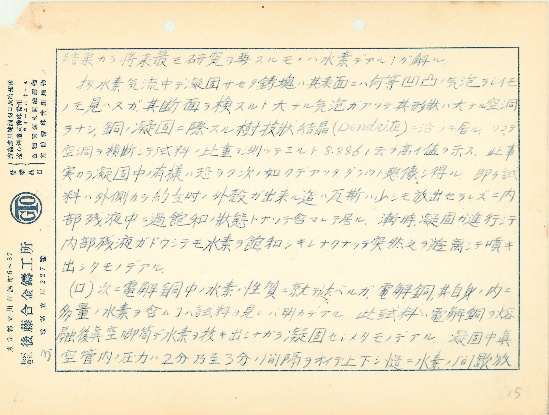 結果カラ将来最モ研究ヲ要スルモノハ水素デアルヿガ解ル
扨水素気流中デ凝固サセタ鋳塊ハ其表面ニハ何等凹凸ノ気泡ラシイモ
ノモ見ヘヌガ其断面ヲ検スルト大ナル気泡ガアツテ其形状ハ大ナル空洞
ヲナシ、銅ノ凝固ニ際スル樹枝状結晶(Dendrite)ニ沿ツテ居ル
空洞ヲ横断シテ試料ノ比重ヲ測ツテミルト 8.8861 ト云フ高イ値ヲ示ス 此事
実カラ凝固中ノ有様ハ恐ラク次ノ如クデアツタダラウト想像シ得ル 即チ試
料ハ外側カラ約 外殻ガ出来ル迄ハ瓦斯ハ少シモ放出セラレズニ内
部残液中ニ過飽和ノ状態トナツテ含マレテ居ル 漸時凝固ガ進行シテ
内部残液ガドウシテモ水素ヲ飽和シキレナクナツテ突然之ヲ游離シテ噴キ
出シタモノデアル
(ロ) 次ニ電解銅中ノ水素ノ性質ニ就テ述ベルガ、電解銅其自身ノ内ニ
多量ノ水素ヲ含ムヿハ試料ヲ見レバ明カデアル 此試料ハ電解銅ヲ熔
融後真空喞筒デ水素ヲ抜キ出シナガラ凝固セシメタモノデアル 凝固中真
空管内ノ圧力ハ2分乃至3分ノ間隔ヲオイテ上下シ 水素ノ間歇放
後藤合金鑄工所
東京都品川
15